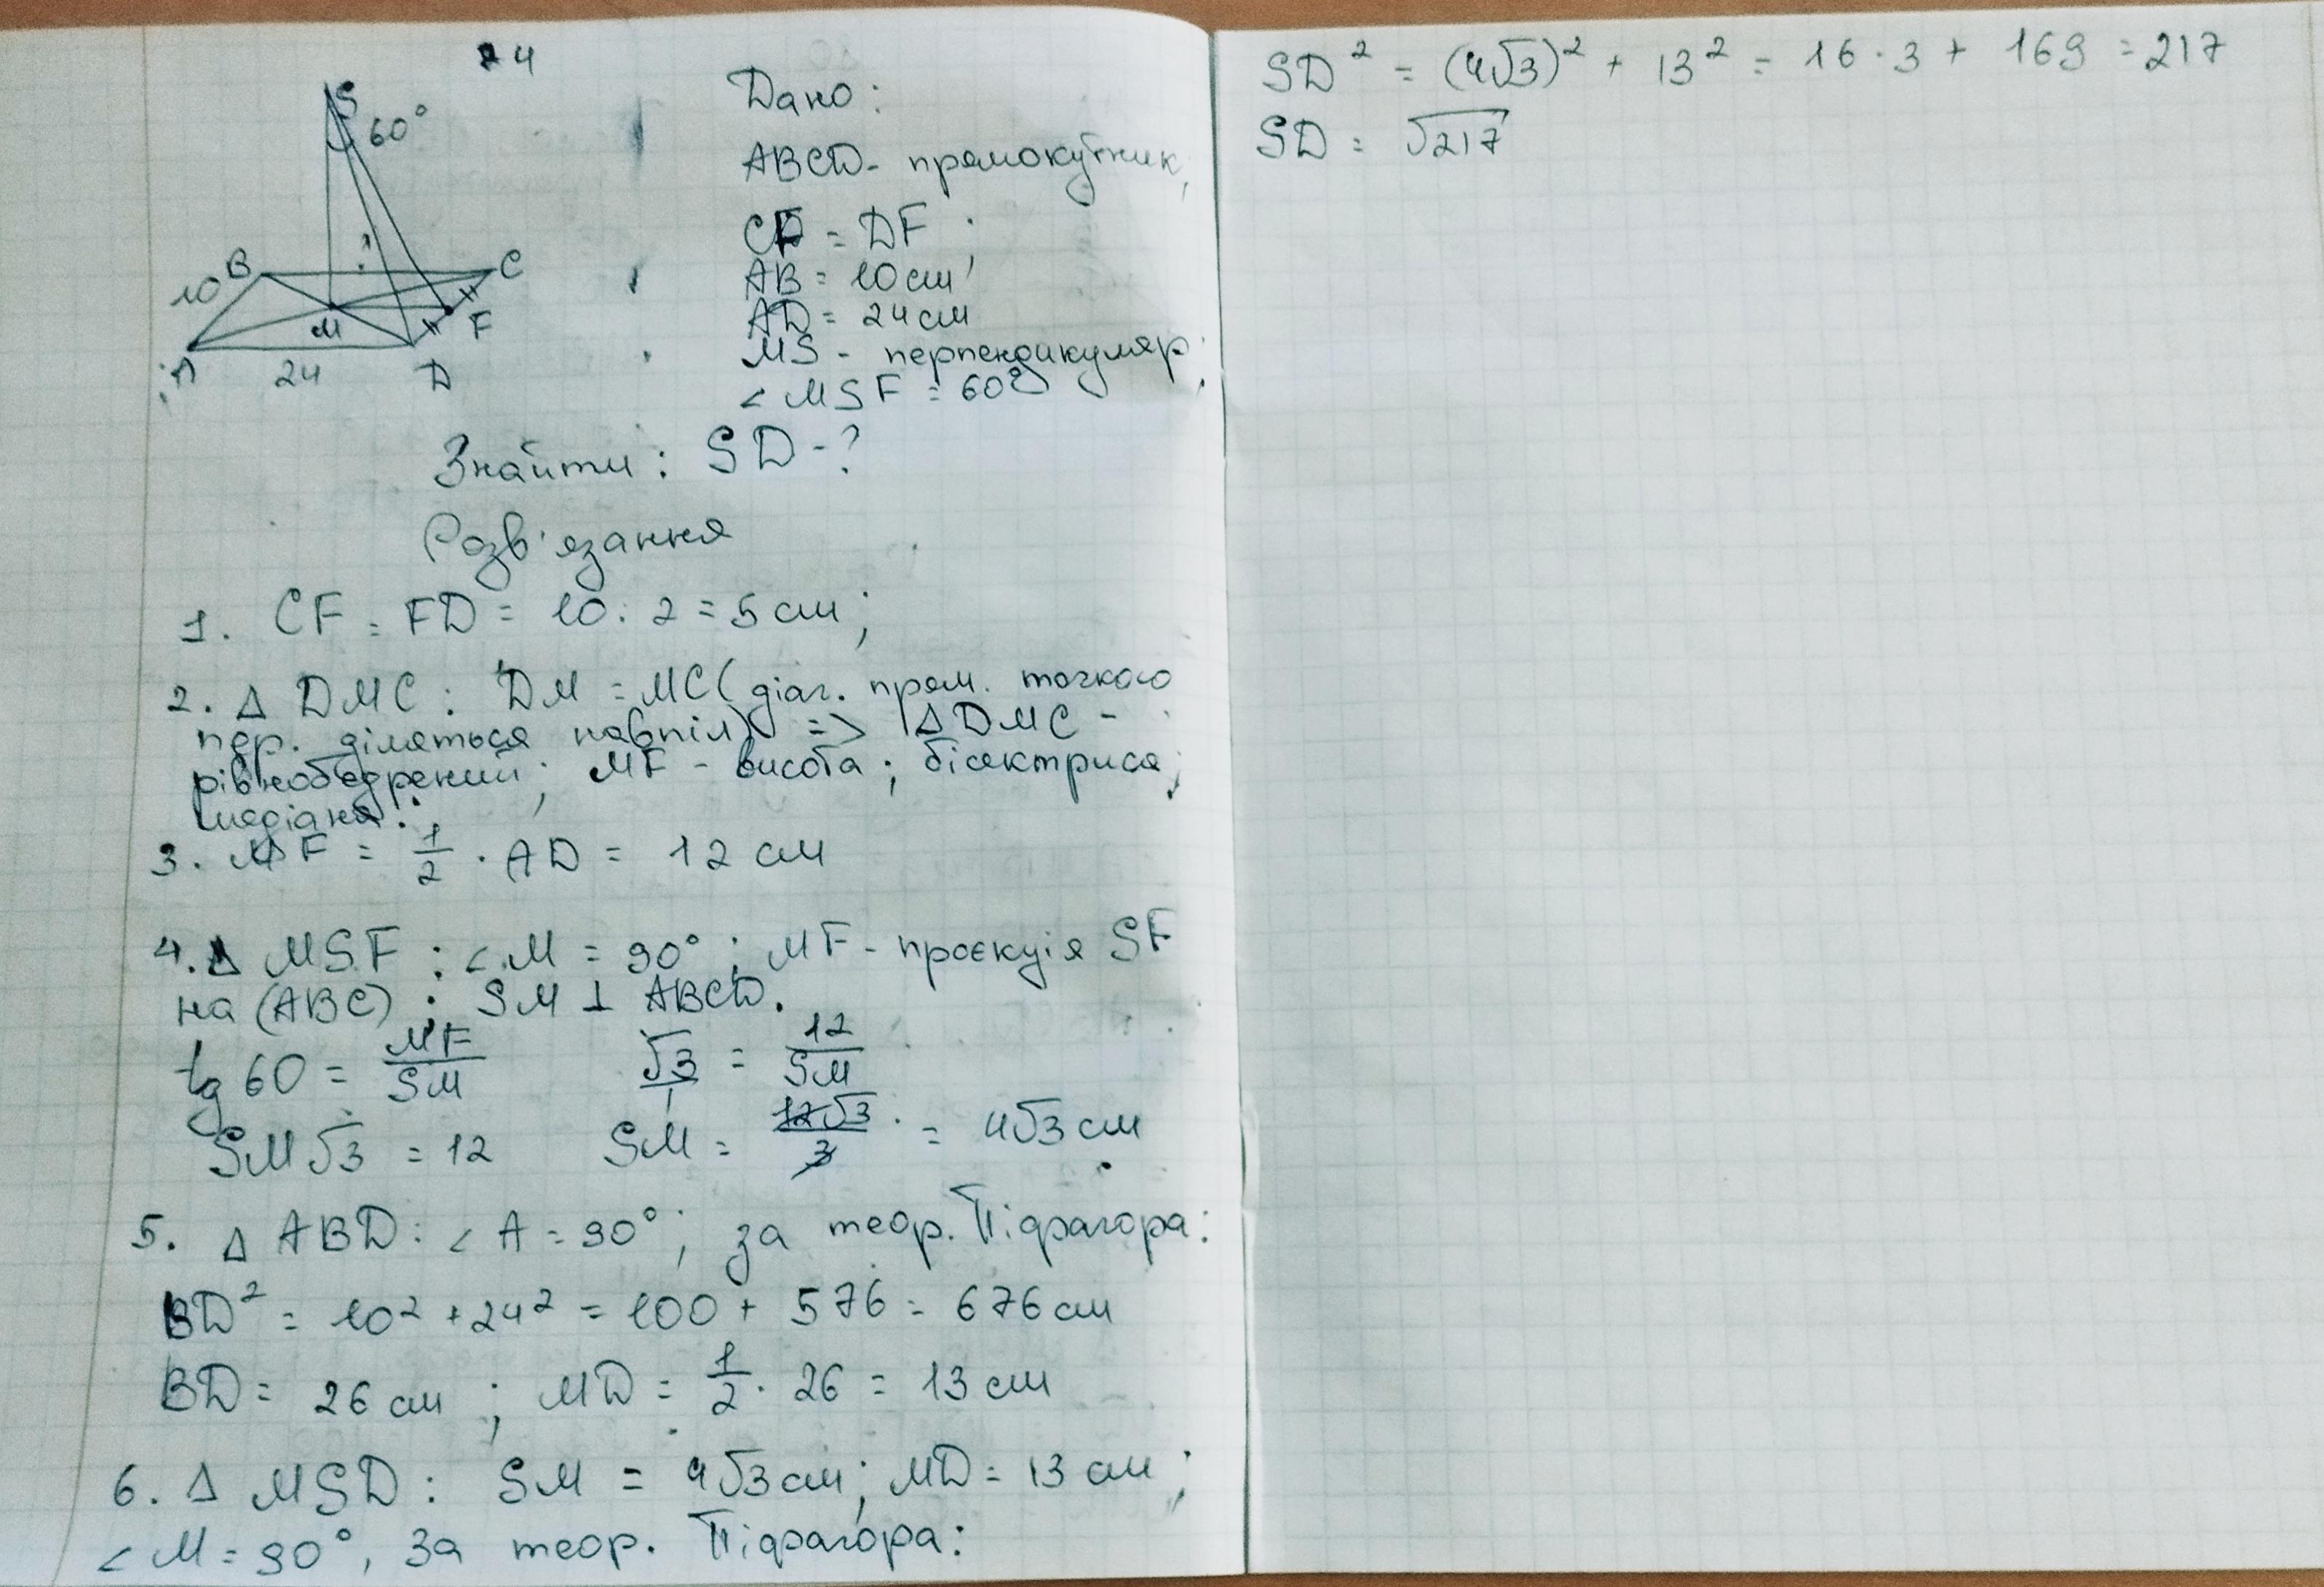 24
S
60°
B
C
10
M
F
A
24
D
Дано:
ABCD - прямокутник;
CF = DF;
AB = 10 см;
AD = 24 см
MS - перпендикуляр;
∠MSF = 60°
Знайти: SD - ?
Розв'язання
1. CF = FD = 10 : 2 = 5 см;
2. Δ DMC : DM = MC (діаг. прям. точкою
пер. діляться навпіл) => ΔDMC -
рівнобедрений; MF - висота; бісектриса;
медіана.
3. MF = 1/2 · AD = 12 см
4. Δ MSF : ∠M = 90°; MF - проєкція SF
на (ABC); SM ⊥ ABCD.
tg 60 = MF/SM √3/1 = 12/SM
SM√3 = 12 SM = 12√3/3 = 4√3 см
5. Δ ABD : ∠A = 90°; за теор. Підрагора:
BD² = 10² + 24² = 100 + 576 = 676 см
BD = 26 см; MD = 1/2 · 26 = 13 см
6. Δ MSD : SM = 4√3 см; MD = 13 см;
∠M = 90°, За теор. Підрагора:
SD² = (4√3)² + 13² = 16 · 3 + 169 = 217
SD = √217